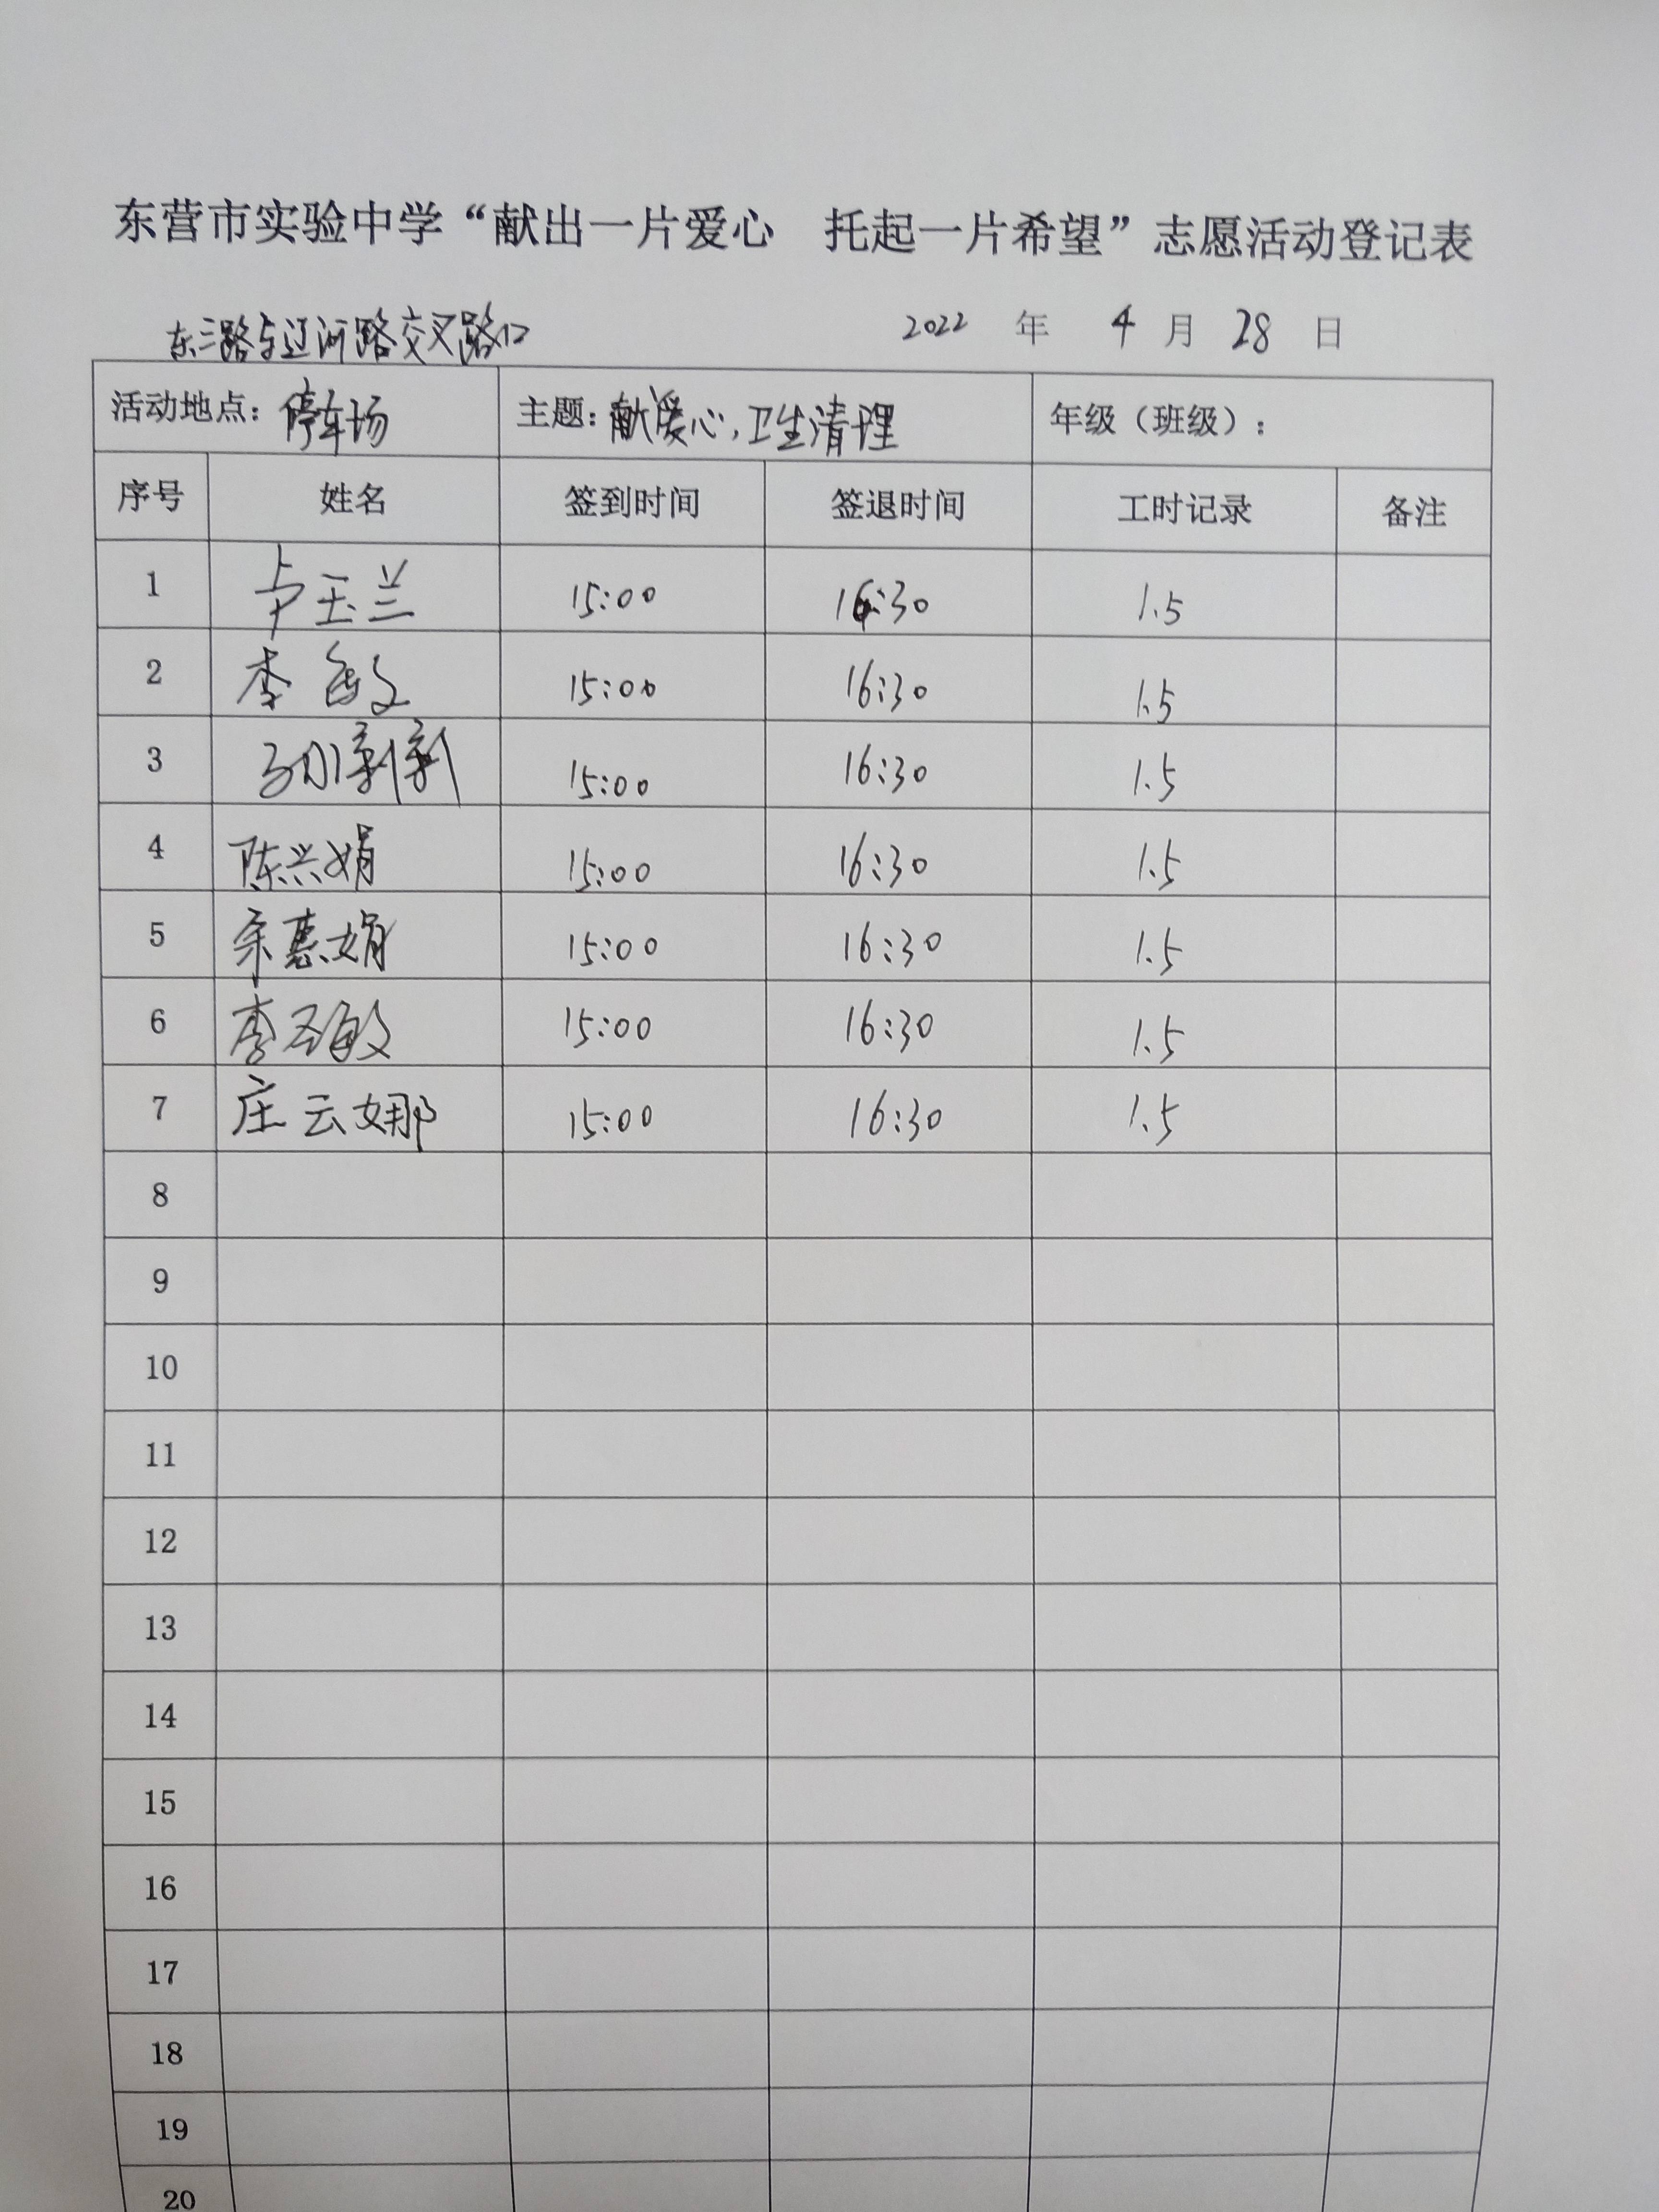 东营市实验中学“献出一片爱心 托起一片希望”志愿活动登记表
东三路与辽河路交叉路口 2022 年 4 月 28 日
活动地点：停车场 主题：献爱心，卫生清理 年级（班级）：
序号 姓名 签到时间 签退时间 工时记录 备注
1 卢玉兰 15:00 16:30 1.5
2 李敏 15:00 16:30 1.5
3 15:00 16:30 1.5
4 陈兴娟 15:00 16:30 1.5
5 惠娟 15:00 16:30 1.5
6 李 敏 15:00 16:30 1.5
7 庄云娜 15:00 16:30 1.5
8
9
10
11
12
13
14
15
16
17
18
19
20